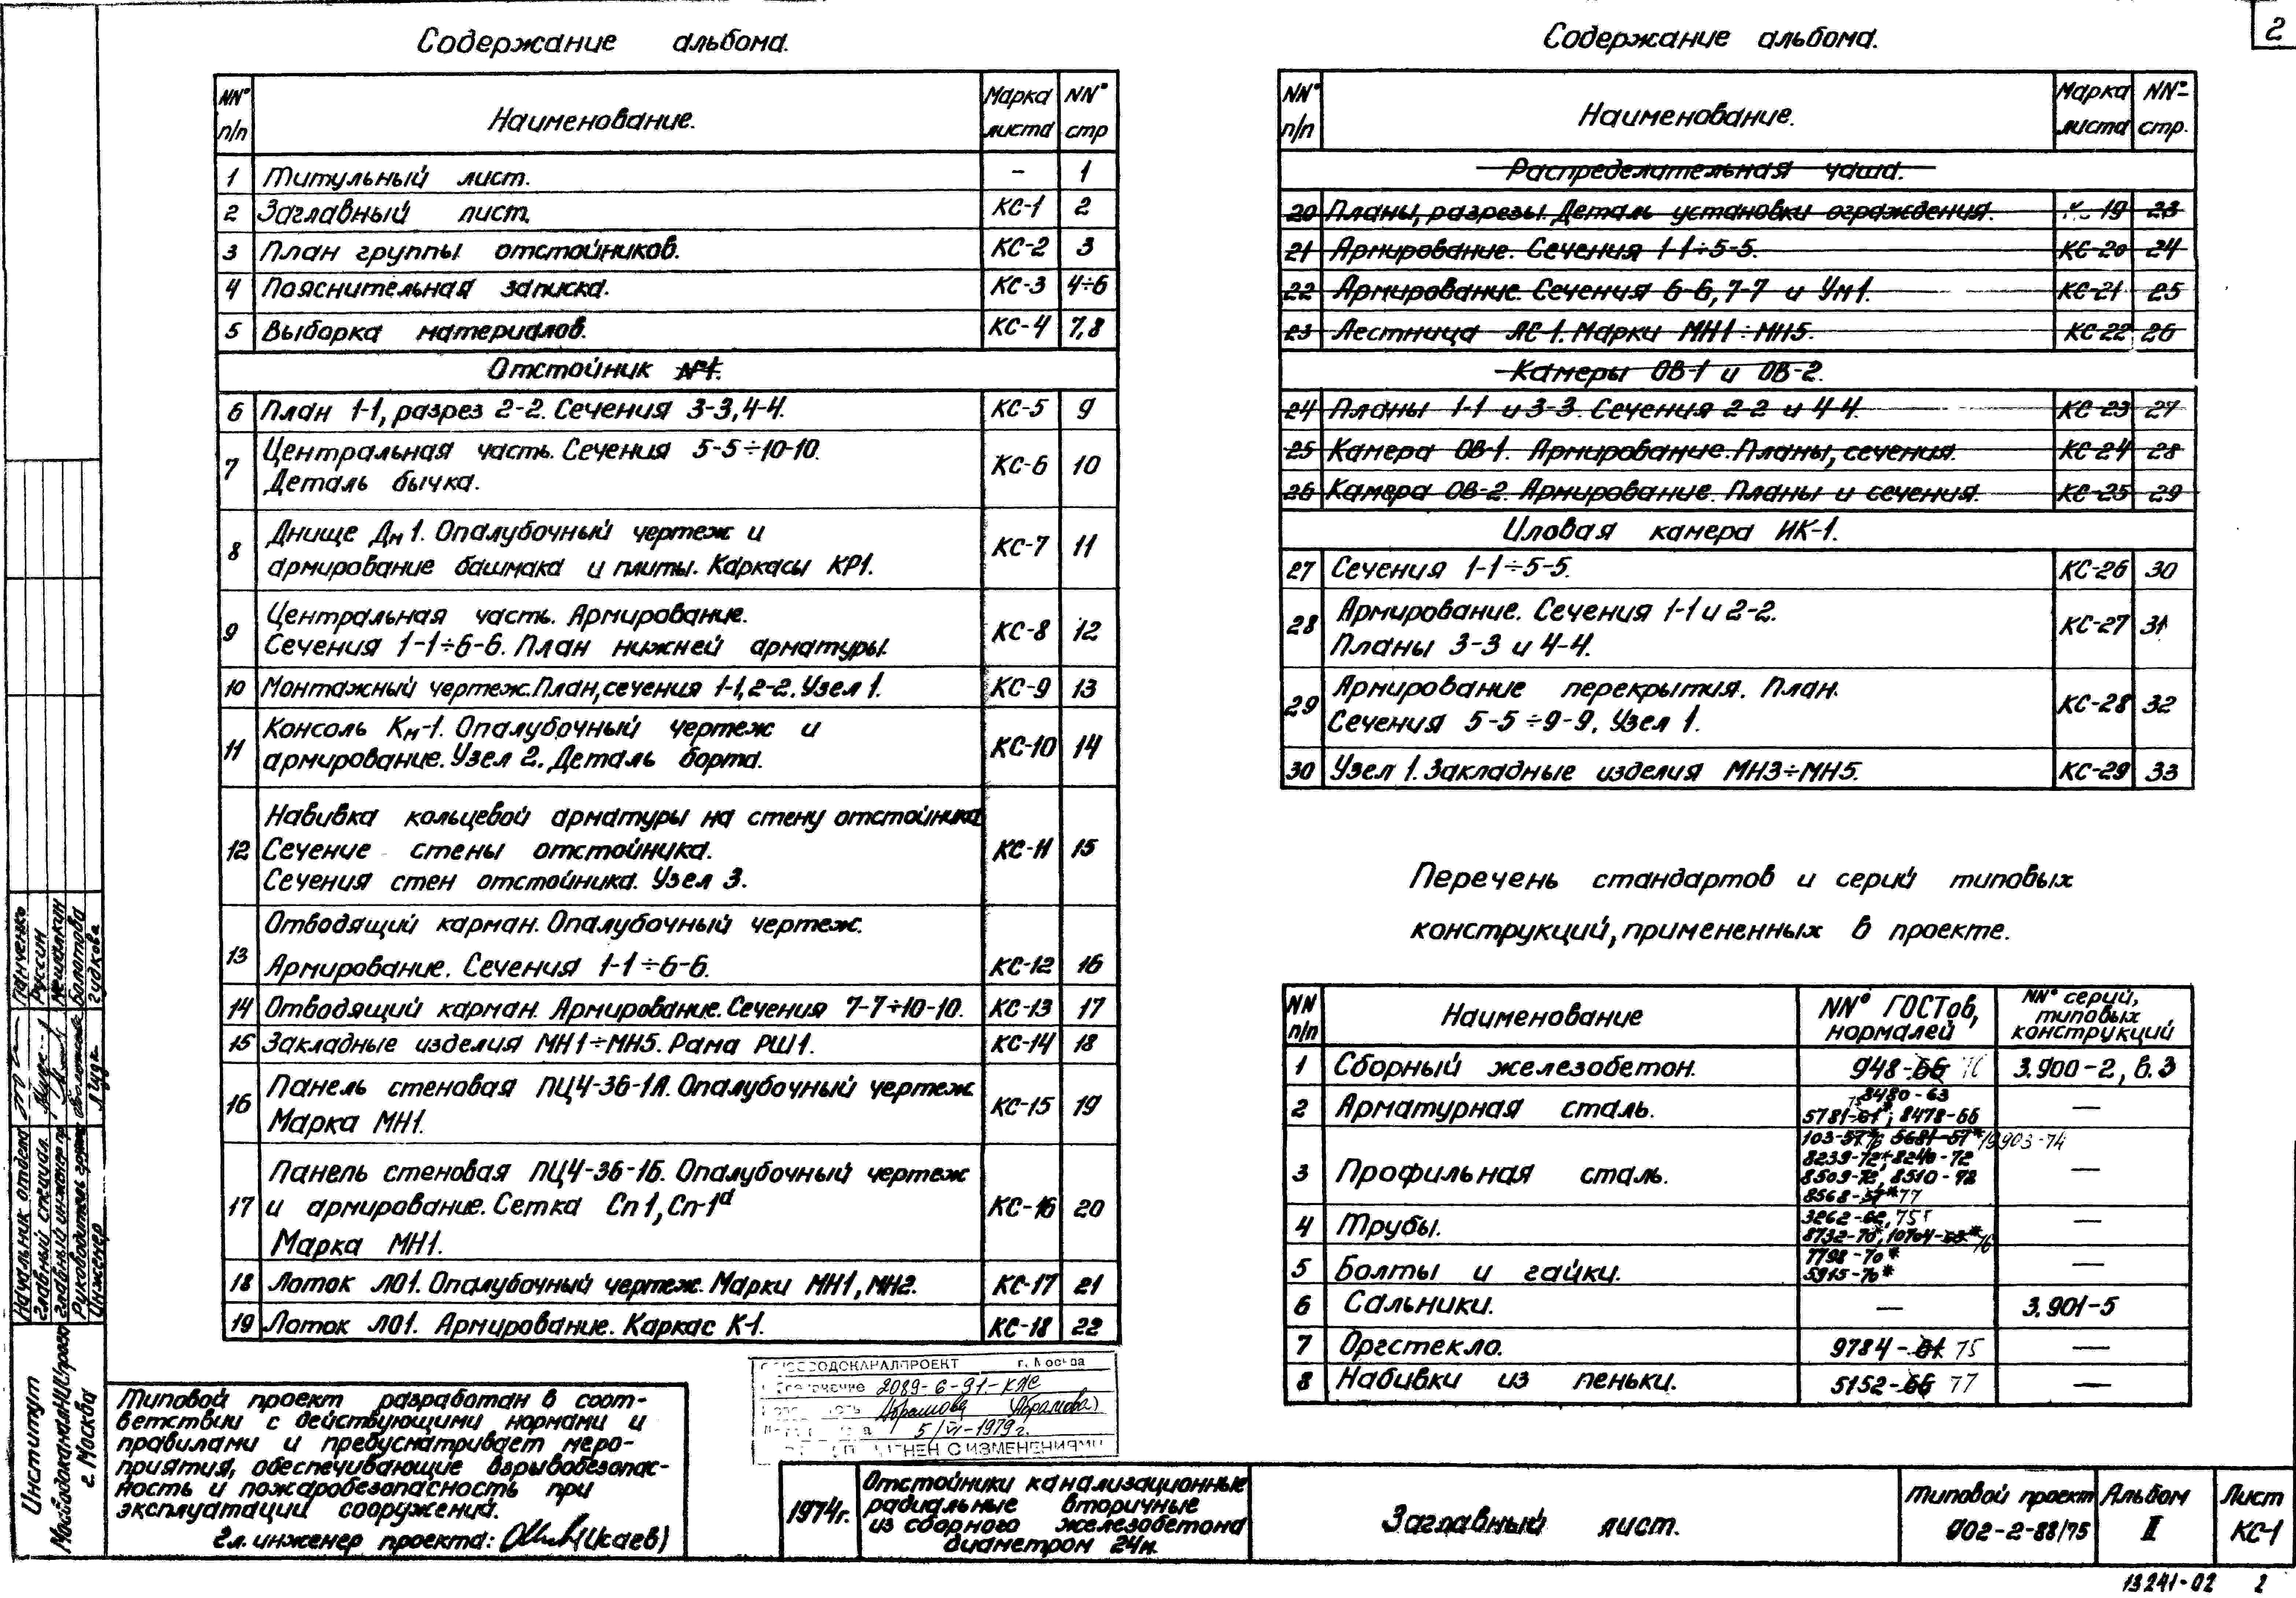 2
Содержание альбома.
NN° п/п Наименование. Марка листа NN° стр
1 Титульный лист. – 1
2 Заглавный лист. КС-1 2
3 План группы отстойников. КС-2 3
4 Пояснительная записка. КС-3 4÷6
5 Выборка материалов. КС-4 7,8
Отстойник №1.
6 План 1-1, разрез 2-2. Сечения 3-3, 4-4. КС-5 9
7 Центральная часть. Сечения 5-5÷10-10.
Деталь бычка. КС-6 10
8 Днище Дм 1. Опалубочный чертеж и
армирование башмака и плиты. Каркасы КР1. КС-7 11
9 Центральная часть. Армирование.
Сечения 1-1÷6-6. План нижней арматуры. КС-8 12
10 Монтажный чертеж. План, сечения 1-1, 2-2. Узел 1. КС-9 13
11 Консоль Км-1. Опалубочный чертеж и
армирование. Узел 2. Деталь борта. КС-10 14
12 Навивка кольцевой арматуры на стену отстойника
Сечение стены отстойника.
Сечения стен отстойника. Узел 3. КС-11 15
13 Отводящий карман. Опалубочный чертеж.
Армирование. Сечения 1-1÷6-6. КС-12 16
14 Отводящий карман. Армирование. Сечения 7-7÷10-10. КС-13 17
15 Закладные изделия МН1÷МН5. Рама РШ1. КС-14 18
16 Панель стеновая ПЦ4-36-1А. Опалубочный чертеж
Марка МН1. КС-15 19
17 Панель стеновая ПЦ4-36-1Б. Опалубочный чертеж
и армирование. Сетка Сп1, Сп-1а
Марка МН1. КС-16 20
18 Лоток Л01. Опалубочный чертеж. Марки МН1, МН2. КС-17 21
19 Лоток Л01. Армирование. Каркас К-1. КС-18 22
Содержание альбома.
NN° п/п Наименование. Марка листа NN° стр.
Распределательная чаша.
20 Планы, разрезы. Деталь установки ограждения. КС-19 23
21 Армирование. Сечения 1-1÷5-5. КС-20 24
22 Армирование. Сечения 6-6, 7-7 и Ум1. КС-21 25
23 Лестница ЛС-1. Марки МН1÷МН5. КС-22 26
Камеры ОВ-1 и ОВ-2.
24 Планы 1-1 и 3-3. Сечения 2-2 и 4-4. КС-23 27
25 Камера ОВ-1. Армирование. Планы, сечения. КС-24 28
26 Камера ОВ-2. Армирование. Планы и сечения. КС-25 29
Иловая камера ИК-1.
27 Сечения 1-1÷5-5. КС-26 30
28 Армирование. Сечения 1-1 и 2-2.
Планы 3-3 и 4-4. КС-27 31
29 Армирование перекрытия. План.
Сечения 5-5÷9-9. Узел 1. КС-28 32
30 Узел 1. Закладные изделия МН3÷МН5. КС-29 33
Перечень стандартов и серий типовых
конструкций, примененных в проекте.
NN п/п Наименование NN° ГОСТов, нормалей NN° серий, типовых конструкций
1 Сборный железобетон. 948-66 76 3.900-2, в.3
2 Арматурная сталь. 8480-63
5781-61*; 8478-66 75 —
3 Профильная сталь. 103-57* 76, 5681-57* 19903-74
8239-72*, 8240-72
8509-72, 8510-72
8568-57* 77 —
4 Трубы. 3262-62, 75
8732-70*, 10704-63* 76 —
5 Болты и гайки. 7798-70*
5915-70* —
6 Сальники. — 3.901-5
7 Оргстекло. 9784-61 75 —
8 Набивки из пеньки. 5152-66 77 —
Начальник отдела Панченко
Главный специал. Руссин
Главный инженер пр. Мешалкин
Руководитель группы Болотова
Инженер Гудкова
Институт
МосводоканалНИИпроект
г. Москва
Типовой проект разработан в соот-
ветствии с действующими нормами и
правилами и предусматривает меро-
приятия, обеспечивающие взрывобезопас-
ность и пожаробезопасность при
эксплуатации сооружений.
Гл. инженер проекта: (Исаев)
СОЮЗВОДОКАНАЛПРОЕКТ г. Москва
2089-6-91-КЖ
Абрамова (Абрамова)
5/VI-1979г.
С ИЗМЕНЕНИЯМИ
1974г.
Отстойники канализационные
радиальные вторичные
из сборного железобетона
диаметром 24м.
Заглавный лист.
Типовой проект
902-2-88/75
Альбом
II
Лист
КС-1
13241-02 2